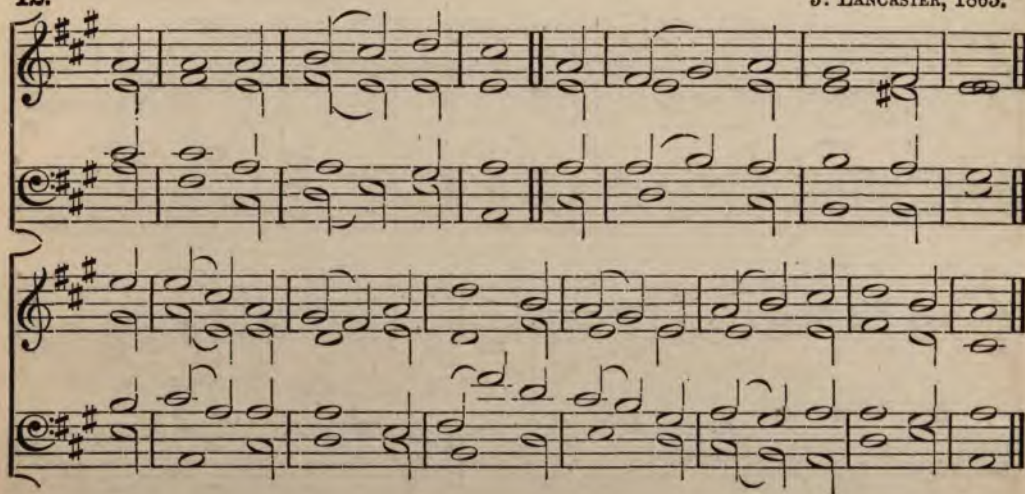 12.
J. LANCASTER, 1863.